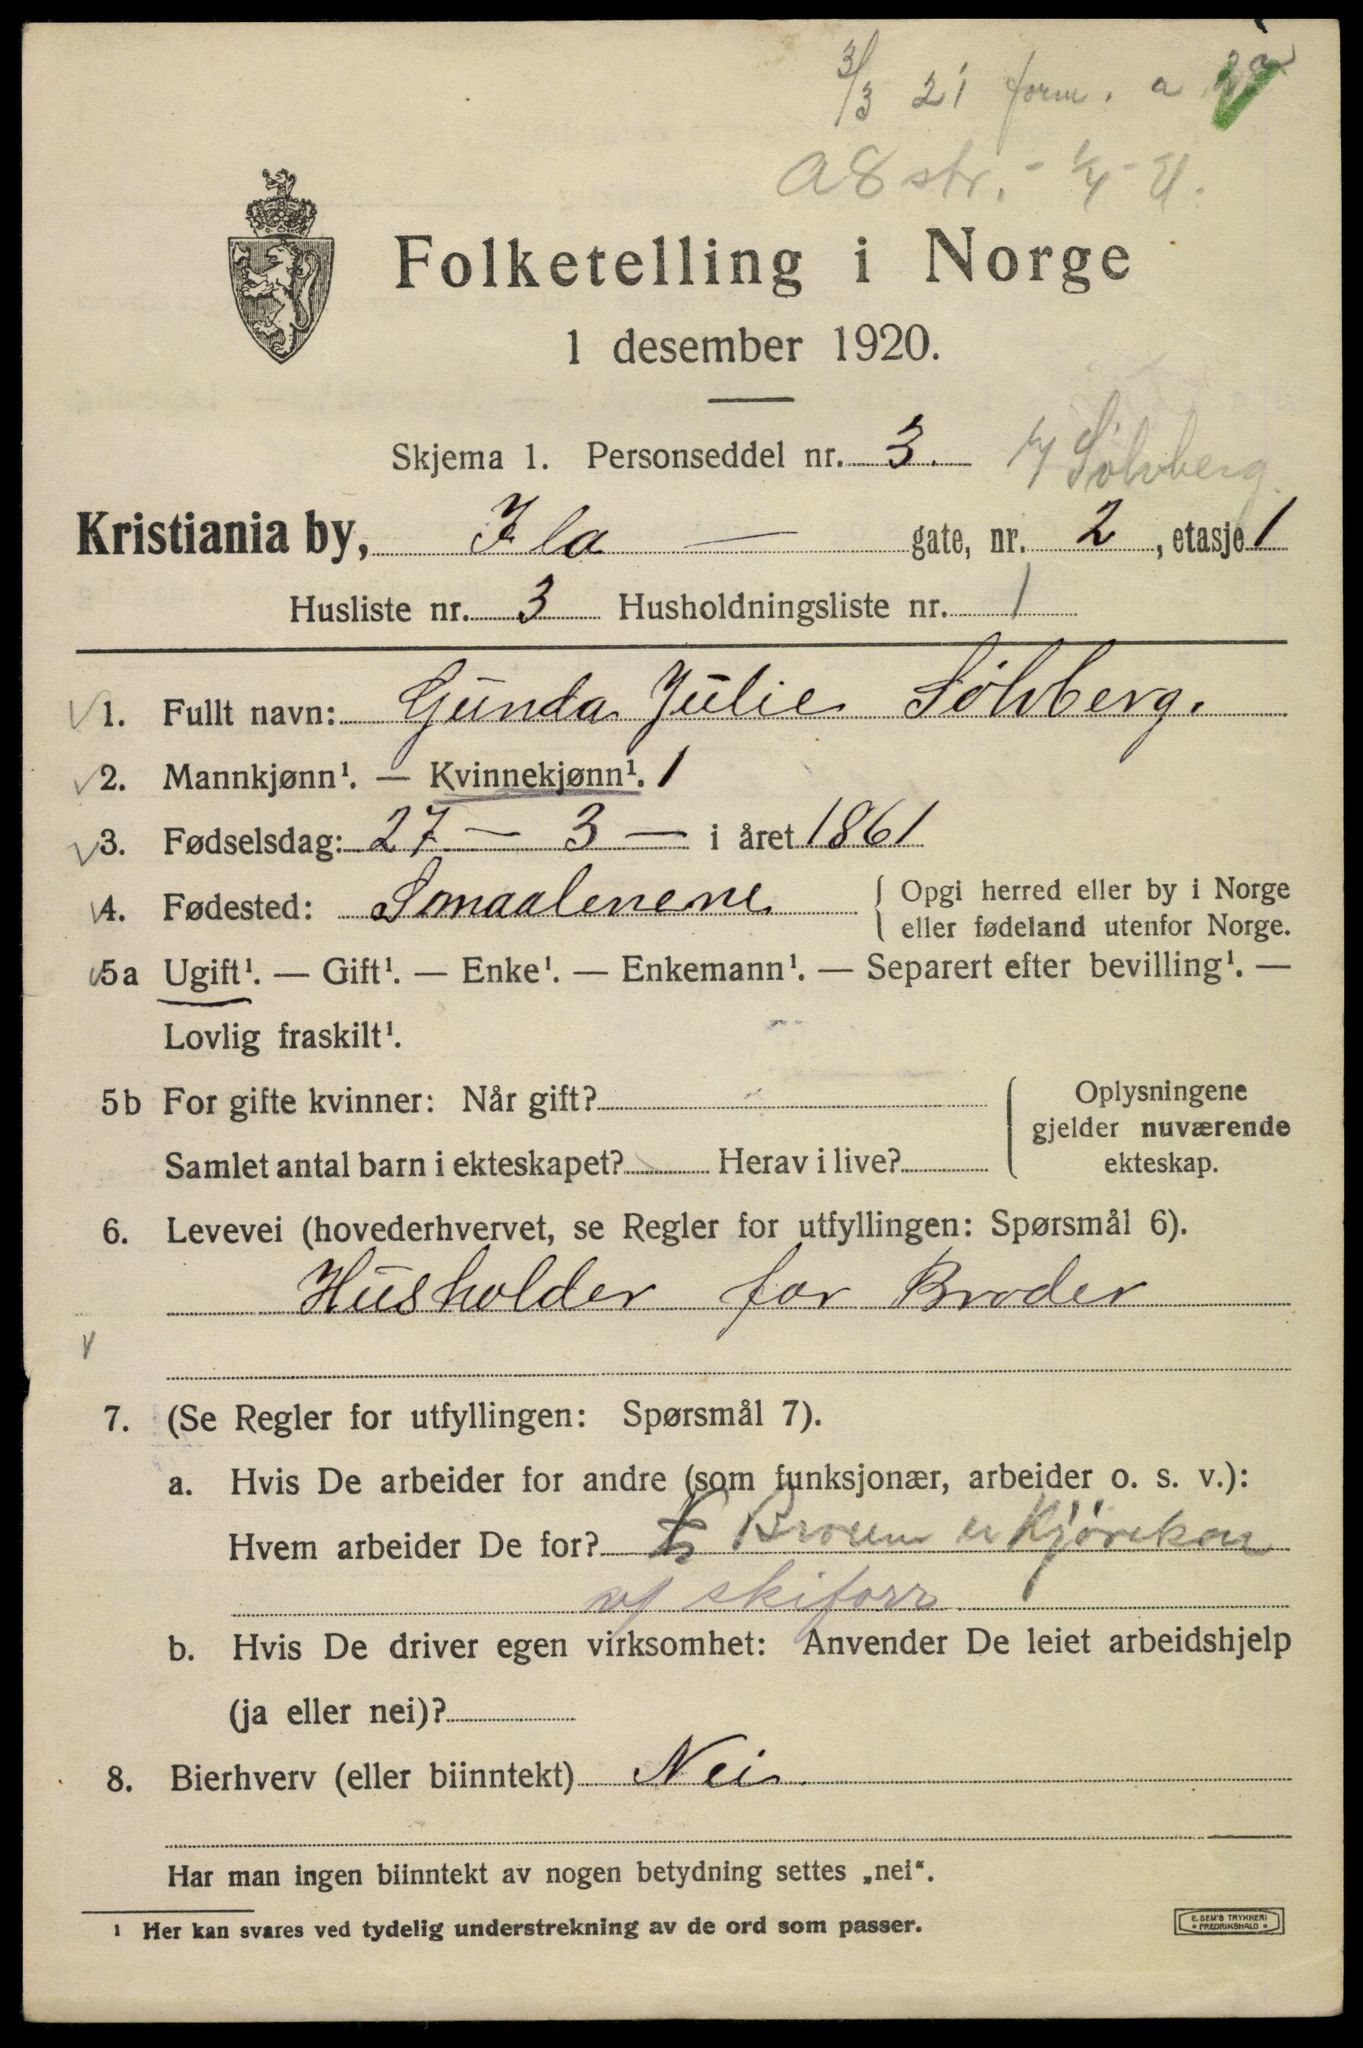 3/3 21 form. a
A8 str.
Folketelling i Norge
1 desember 1920.
Skjema 1. Personseddel nr. 3.
Sølvberg.
Kristiania by, Ila — gate, nr. 2, etasje 1
Husliste nr. 3 Husholdningsliste nr. 1
1. Fullt navn: Gunda Julie Sølvberg.
2. Mannkjønn¹. — Kvinnekjønn¹. 1
3. Fødselsdag: 27 — 3 — i året 1861
4. Fødested: Smaalenene { Opgi herred eller by i Norge
eller fødeland utenfor Norge.
5a Ugift¹. — Gift¹. — Enke¹. — Enkemann¹. — Separert efter bevilling¹. —
Lovlig fraskilt¹.
5b For gifte kvinner: Når gift? { Oplysningene
gjelder nuværende
Samlet antal barn i ekteskapet? Herav i live? ekteskap.
6. Levevei (hovederhvervet, se Regler for utfyllingen: Spørsmål 6).
Husholder for Broder
7. (Se Regler for utfyllingen: Spørsmål 7).
a. Hvis De arbeider for andre (som funksjonær, arbeider o. s. v.):
Hvem arbeider De for? Broren er Kjørekar
skiforr
b. Hvis De driver egen virksomhet: Anvender De leiet arbeidshjelp
(ja eller nei)?
8. Bierhverv (eller biinntekt) Nei
Har man ingen biinntekt av nogen betydning settes „nei“.
¹ Her kan svares ved tydelig understrekning av de ord som passer.
E. SEM'S TRYKKERI
• FREDRIKSHALD •